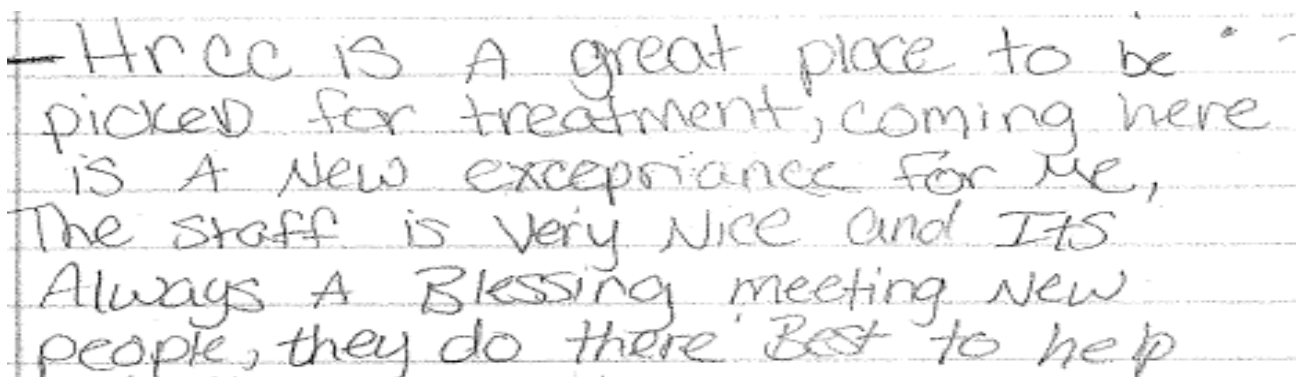 - Hrcc is A great place to be
picked for treatment, coming here
is A New excepriance for Me,
The staff is very Nice and Its
Always A Blessing meeting New
people, they do there Best to help